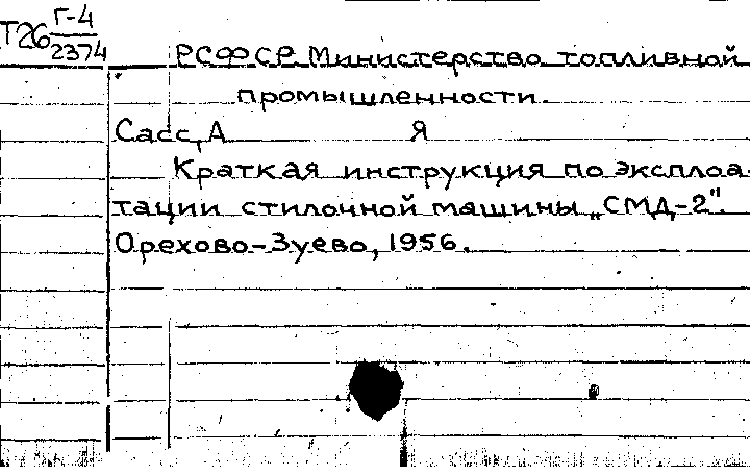 Т26 Г-4
2374
РСФСР. Министерство топливной
промышленности.
Сасс, А Я
Краткая инструкция по эксплоа-
тации стилочной машины „СМД-2".
Орехово-Зуево, 1956.